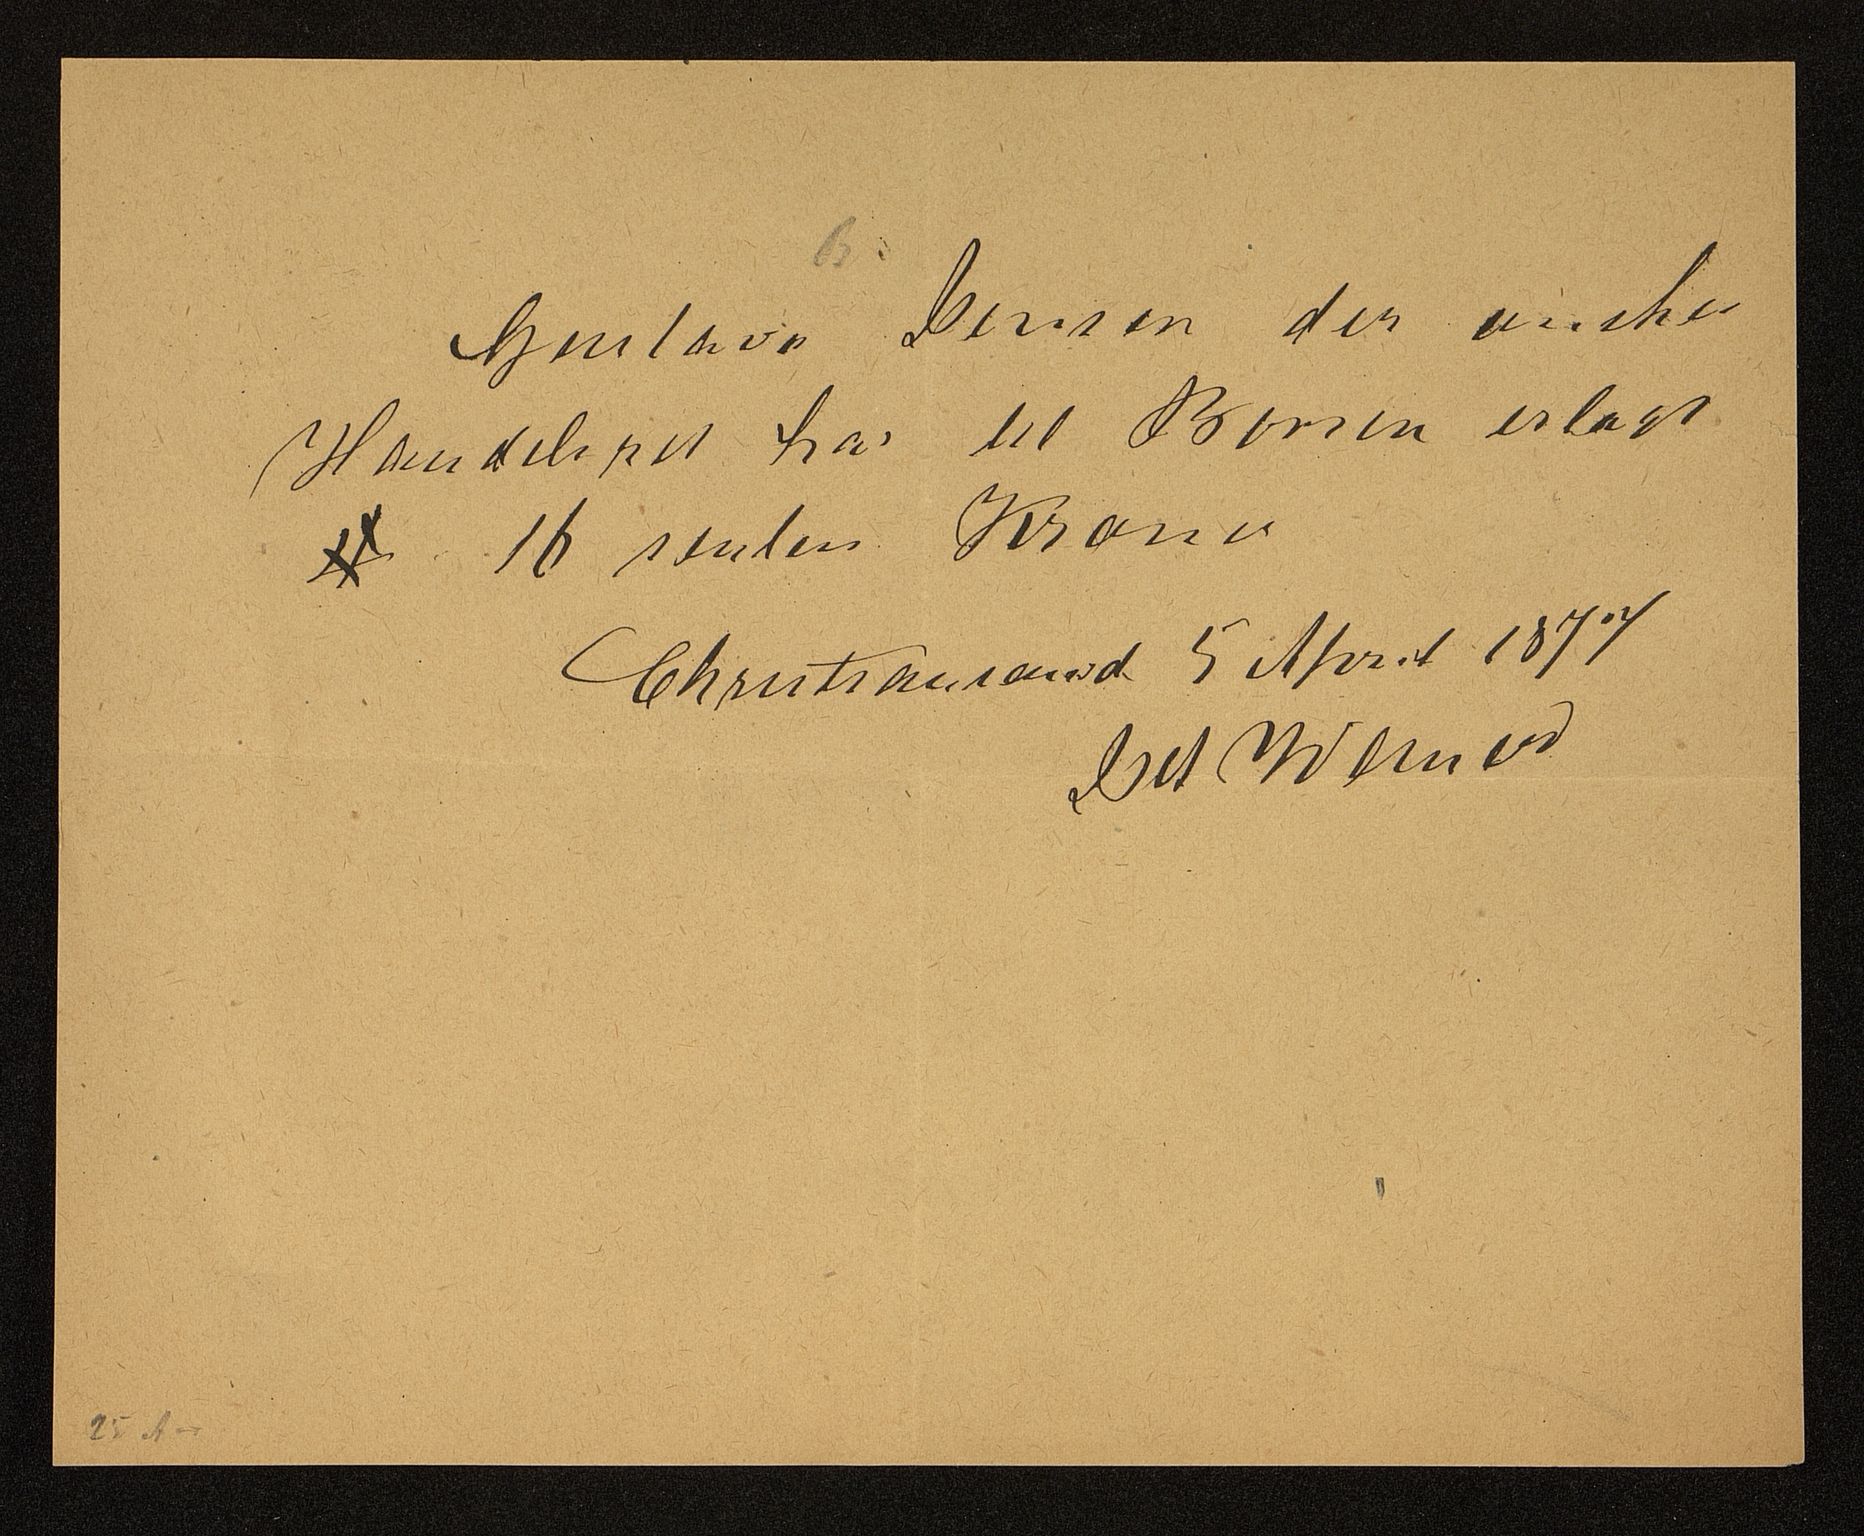 B.
Gustava Jensen der ønsker
Handelsret har til Börsen erlagt
16 sexten Kroner
Christiansand 5 April 1877
25 A